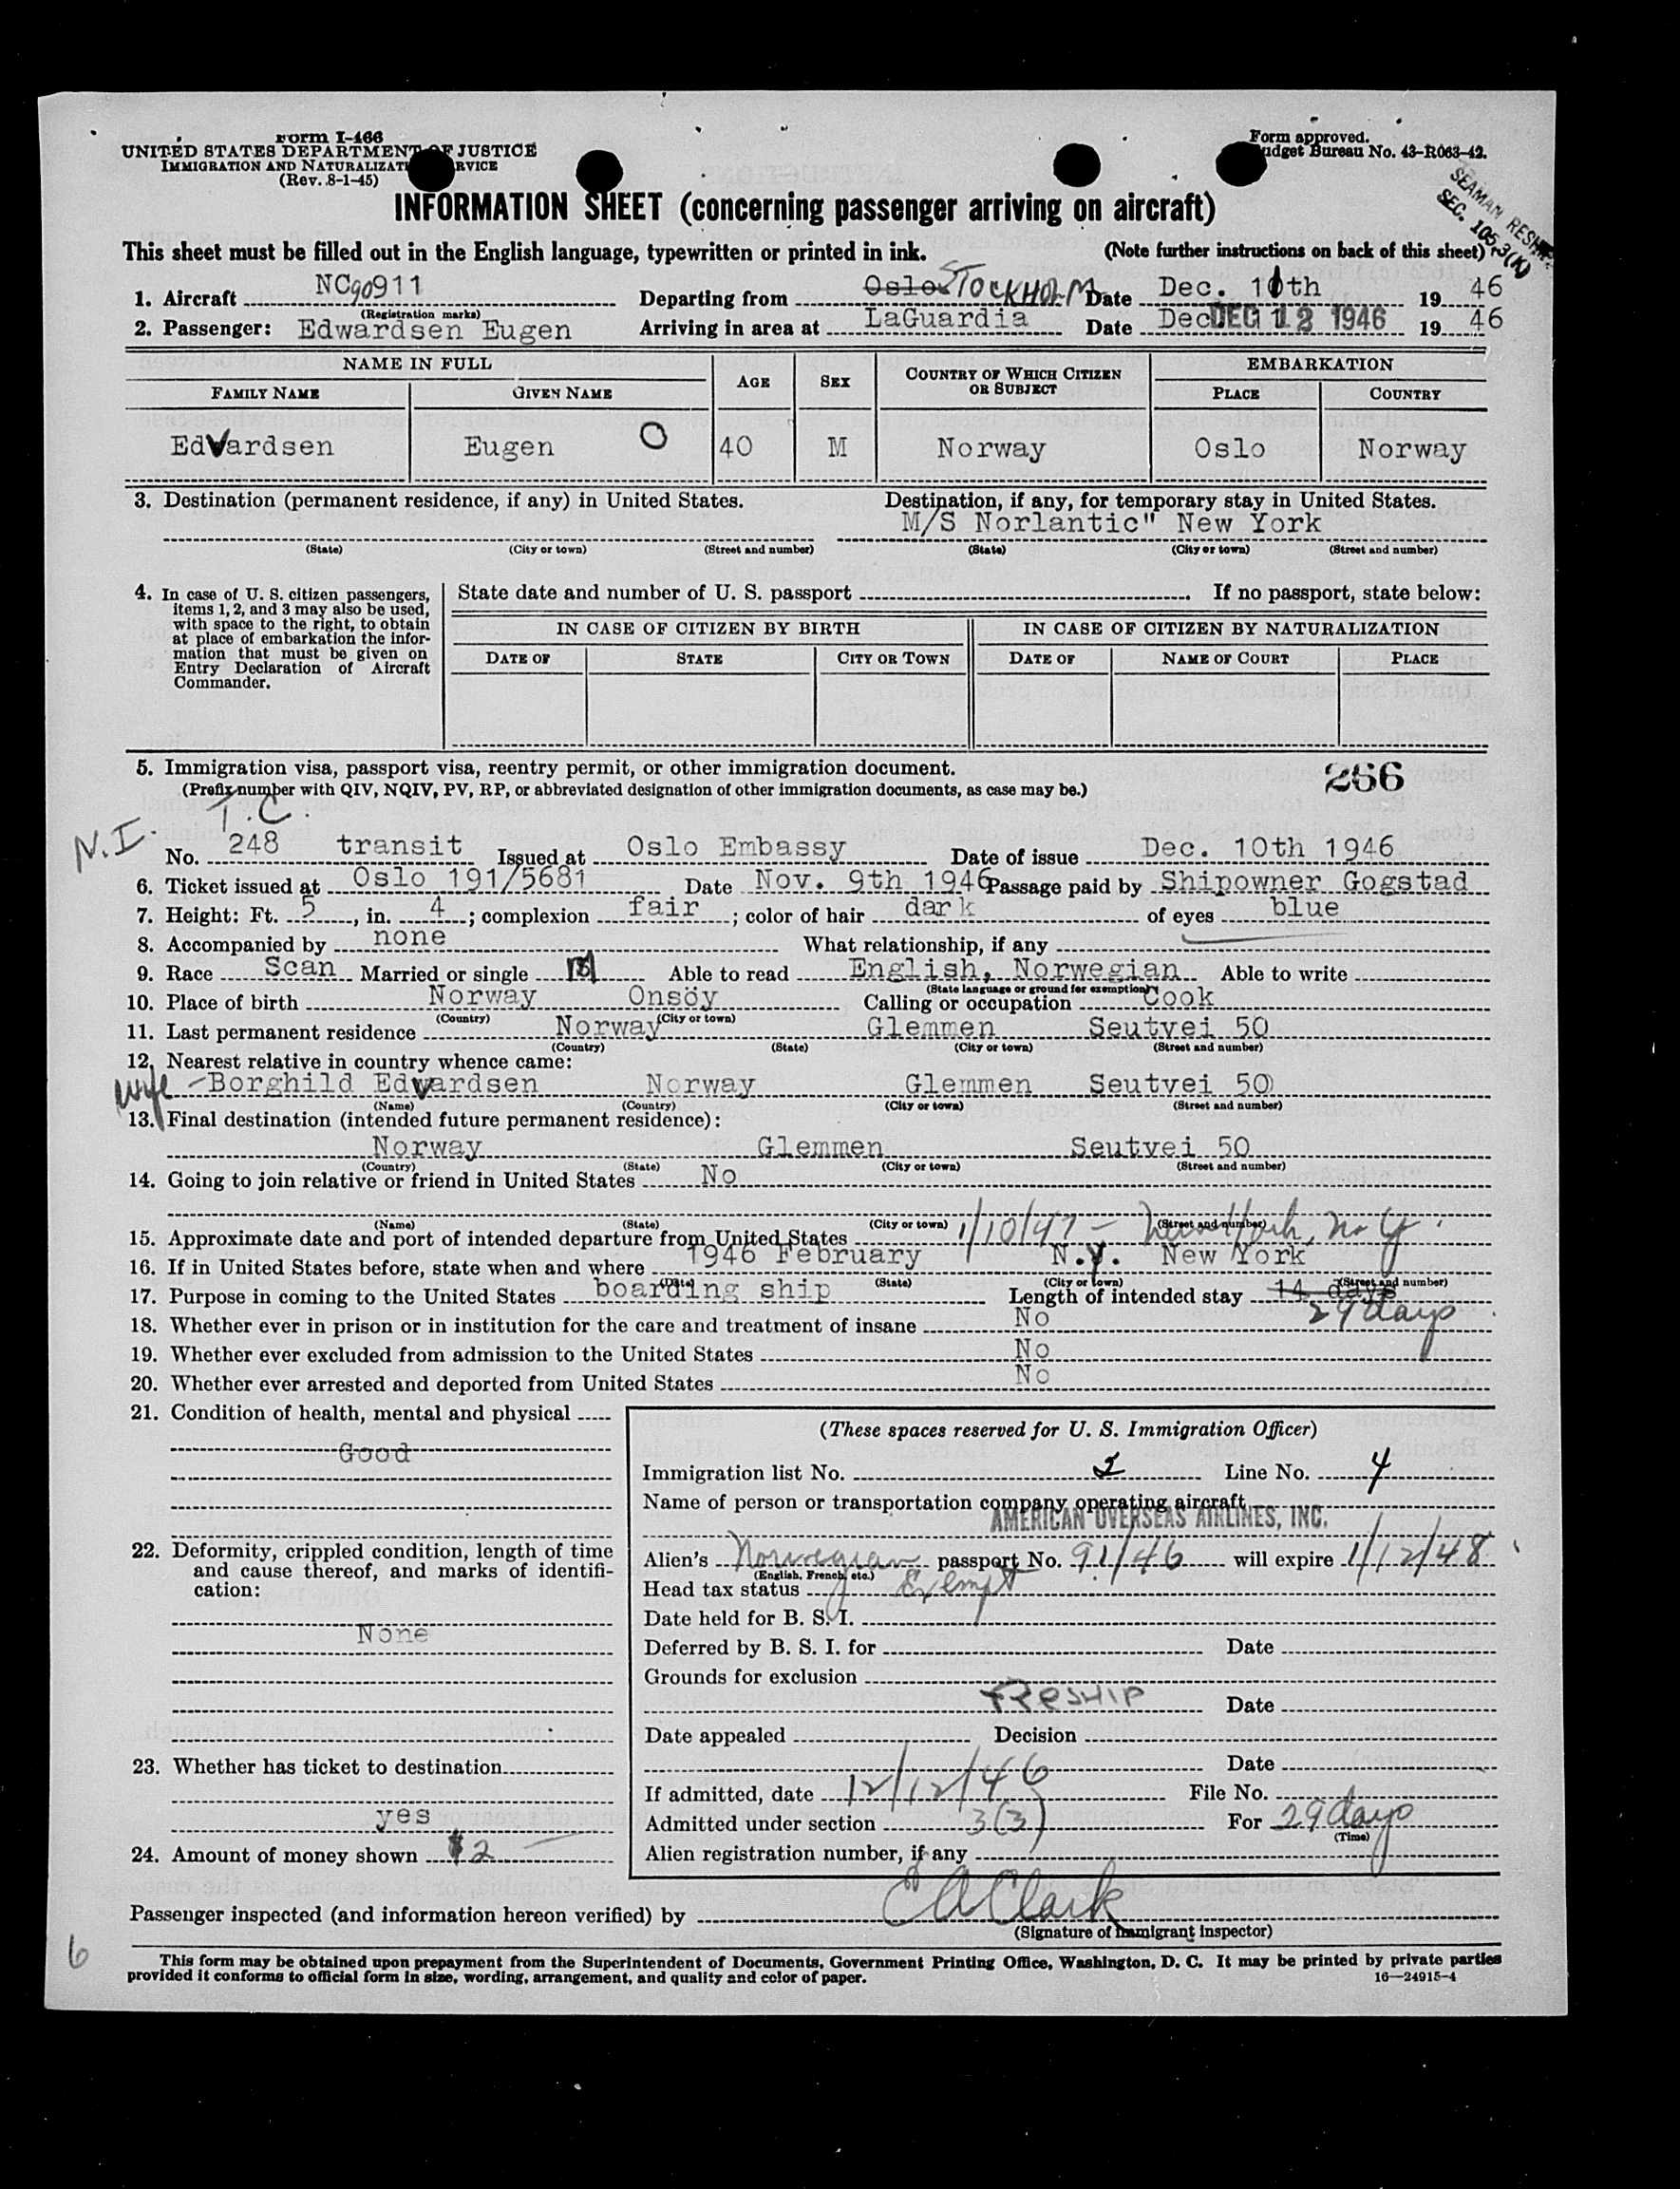 Form I-466
UNITED STATES DEPARTMENT OF JUSTICE
IMMIGRATION AND NATURALIZATION SERVICE
(Rev. 8-1-45)
Form approved.
Budget Bureau No. 43-R063-42.
SEAMAN RESHIP.
SEC. 105.3(K)
INFORMATION SHEET (concerning passenger arriving on aircraft)
This sheet must be filled out in the English language, typewritten or printed in ink. (Note further instructions on back of this sheet)
1. Aircraft NC90911 Departing from Oslo STOCKHOLM Date Dec. 11th 1946
(Registration marks)
2. Passenger: Edwardsen Eugen Arriving in area at LaGuardia Date Dec DEC 12 1946 1946
NAME IN FULL AGE SEX COUNTRY OF WHICH CITIZEN OR SUBJECT EMBARKATION
FAMILY NAME GIVEN NAME PLACE COUNTRY
Edvardsen Eugen O 40 M Norway Oslo Norway
3. Destination (permanent residence, if any) in United States. Destination, if any, for temporary stay in United States.
M/S Norlantic" New York
(State) (City or town) (Street and number) (State) (City or town) (Street and number)
4. In case of U. S. citizen passengers, items 1, 2, and 3 may also be used, with space to the right, to obtain at place of embarkation the information that must be given on Entry Declaration of Aircraft Commander.
State date and number of U. S. passport If no passport, state below:
IN CASE OF CITIZEN BY BIRTH IN CASE OF CITIZEN BY NATURALIZATION
DATE OF STATE CITY OR TOWN DATE OF NAME OF COURT PLACE
5. Immigration visa, passport visa, reentry permit, or other immigration document. 266
(Prefix number with QIV, NQIV, PV, RP, or abbreviated designation of other immigration documents, as case may be.)
N.I. T.C.
No. 248 transit Issued at Oslo Embassy Date of issue Dec. 10th 1946
6. Ticket issued at Oslo 191/5681 Date Nov. 9th 1946 Passage paid by Shipowner Gogstad
7. Height: Ft. 5, in. 4; complexion fair; color of hair dark of eyes blue
8. Accompanied by none What relationship, if any
9. Race Scan Married or single M Able to read English, Norwegian Able to write
(State language or ground for exemption)
10. Place of birth Norway Onsöy Calling or occupation Cook
(Country) (City or town)
11. Last permanent residence Norway Glemmen Seutvei 50
(Country) (State) (City or town) (Street and number)
12. Nearest relative in country whence came:
wife - Borghild Edvardsen Norway Glemmen Seutvei 50
(Name) (Country) (City or town) (Street and number)
13. Final destination (intended future permanent residence):
Norway Glemmen Seutvei 50
(Country) (State) (City or town) (Street and number)
14. Going to join relative or friend in United States No
(Name) (State) (City or town) (Street and number)
15. Approximate date and port of intended departure from United States 1/10/47 - New York, N.Y.
16. If in United States before, state when and where 1946 February N.Y. New York
(Date) (State) (City or town) (Street and number)
17. Purpose in coming to the United States boarding ship Length of intended stay 14 days 29 days
18. Whether ever in prison or in institution for the care and treatment of insane No
19. Whether ever excluded from admission to the United States No
20. Whether ever arrested and deported from United States No
21. Condition of health, mental and physical
Good
22. Deformity, crippled condition, length of time and cause thereof, and marks of identification:
None
23. Whether has ticket to destination
yes
24. Amount of money shown $2
(These spaces reserved for U. S. Immigration Officer)
Immigration list No. 2 Line No. 4
Name of person or transportation company operating aircraft
AMERICAN OVERSEAS AIRLINES, INC.
Alien's Norwegian passport No. 91/46 will expire 1/12/48
(English, French, etc.)
Head tax status Exempt
Date held for B. S. I.
Deferred by B. S. I. for Date
Grounds for exclusion
Reship Date
Date appealed Decision
Date
If admitted, date 12/12/46 File No.
Admitted under section 3(3) For 29 days
(Time)
Alien registration number, if any
Passenger inspected (and information hereon verified) by C A Clark
(Signature of immigrant inspector)
6
This form may be obtained upon prepayment from the Superintendent of Documents, Government Printing Office, Washington, D. C. It may be printed by private parties
provided it conforms to official form in size, wording, arrangement, and quality and color of paper. 16—24915-4